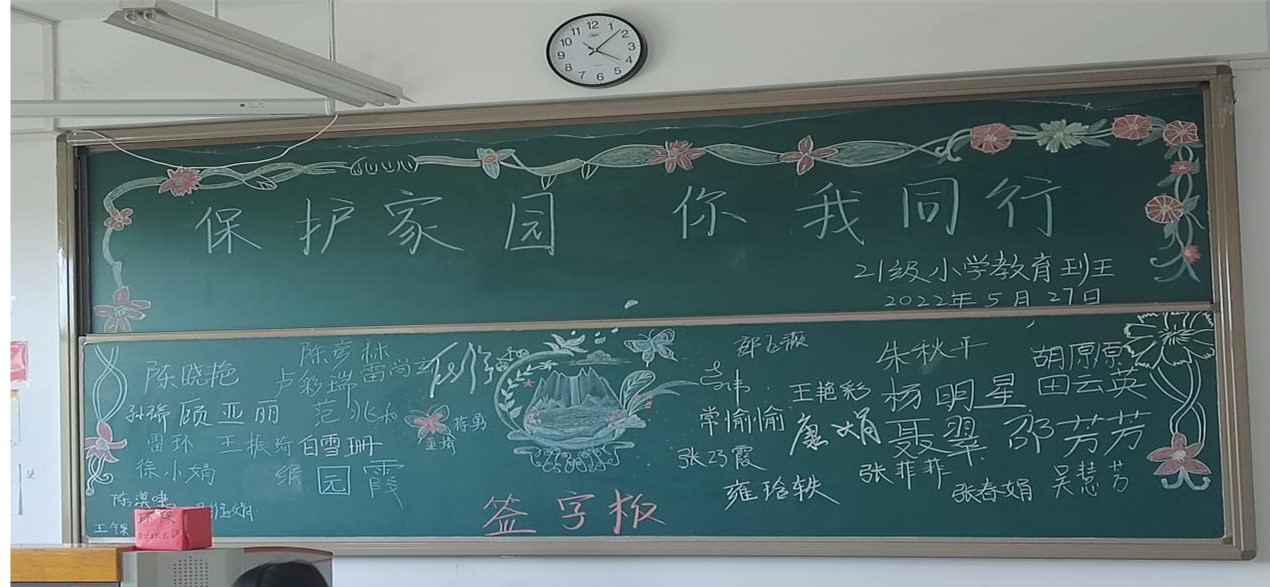 保护家园 你我同行
21级小学教育到王
2022年5月27日
陈晓艳
陈彦林
卢彩瑞
雷尚文
孙瑞
顾亚丽
范兆和
雷环
王振琦
白雪珊
徐小娟
缑园霞
蒋勇
签字板
常愉愉
王艳彩
朱秋平
胡原原
杨明星
田云英
聂翠
邵芳芳
张巧霞
张菲菲
雍玲轶
张春娟
吴慧芳
12
1
2
3
4
5
6
7
8
9
10
11